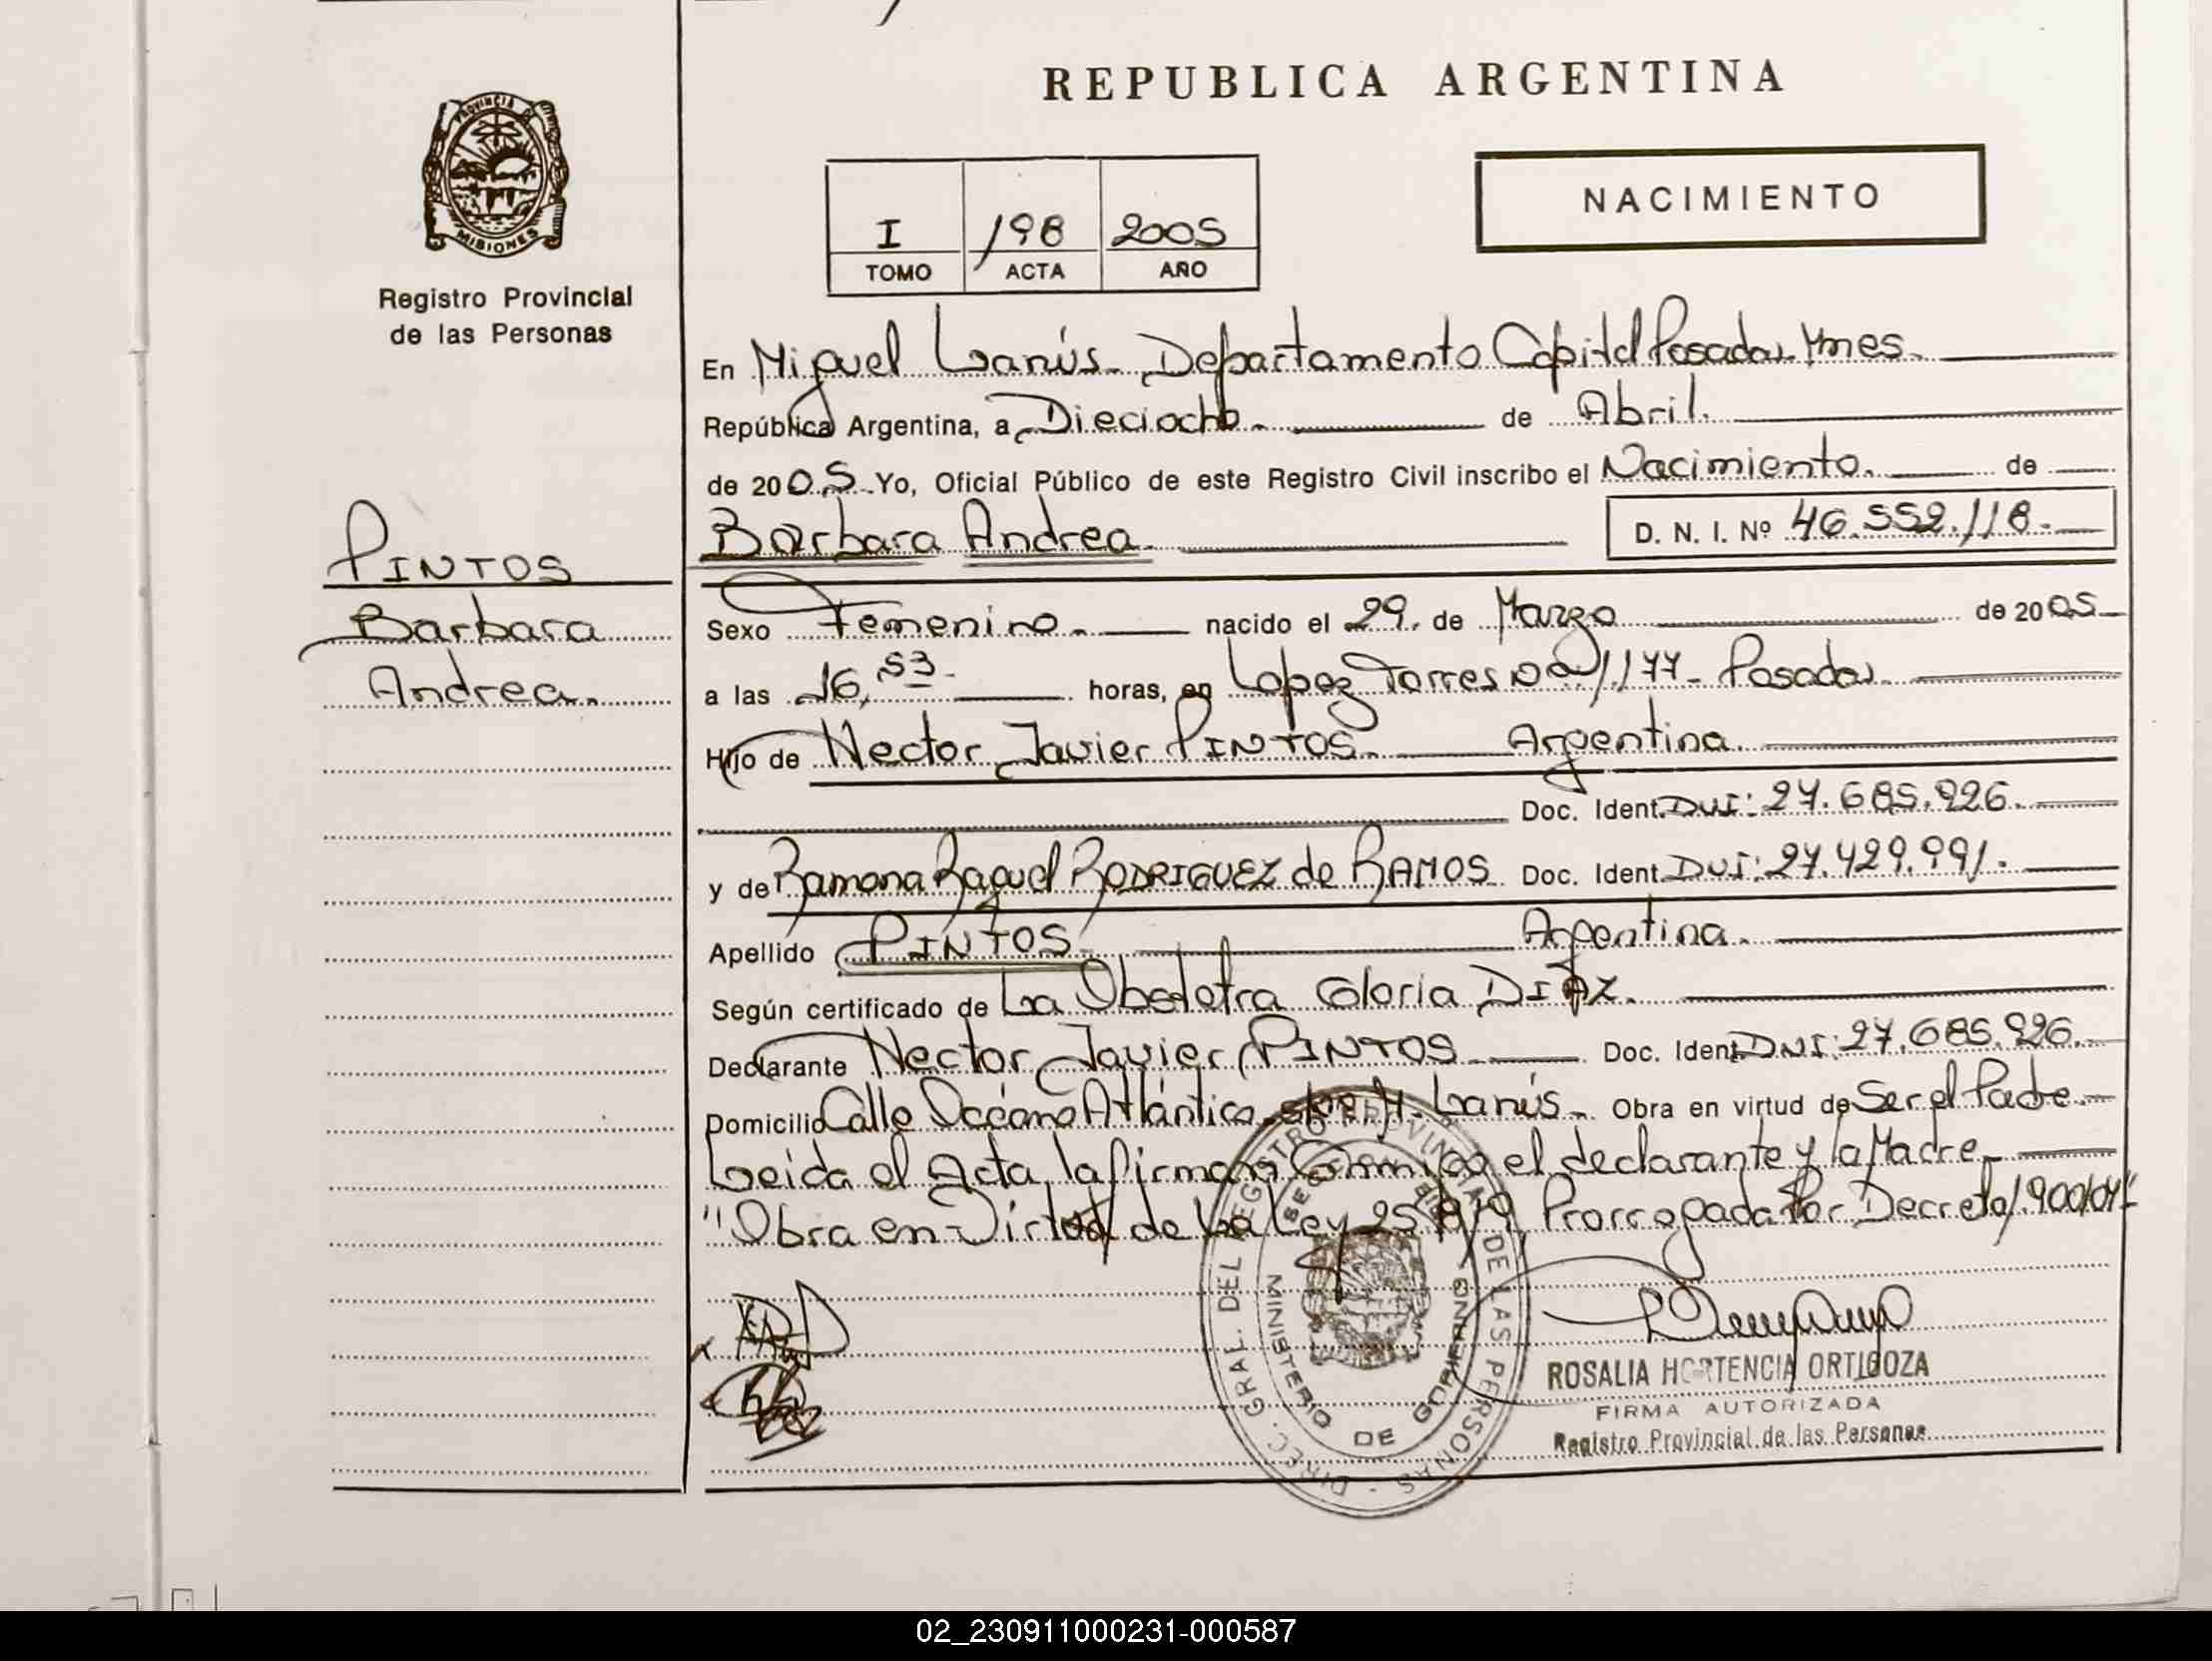 REPUBLICA ARGENTINA
PROVINCIA DE
MISIONES
Registro Provincial
de las Personas
I
198
2005
TOMO
ACTA
AÑO
NACIMIENTO
En Miguel Lanús. Departamento Capital Posadas Mnes.
República Argentina, a Dieciocho. de Abril.
de 2005 Yo, Oficial Público de este Registro Civil inscribo el Nacimiento. de
Barbara Andrea. D. N. I. Nº 46.552.118.
PINTOS
Barbara
Andrea.
Sexo Femenino. nacido el 29. de Marzo de 2005
a las 16,53 horas, en Lopez Torres Nº 1177 - Posadas
Hijo de Hector Javier PINTOS. Argentina.
Doc. Ident. DNI: 27.685.926.
y de Ramona Raquel RODRIGUEZ de RAMOS Doc. Ident. DNI: 27.429.991.
Apellido PINTOS. Argentina.
Según certificado de La Obstetra Gloria DIAZ.
Declarante Hector Javier PINTOS Doc. Iden DNI: 27.685.926.
Domicilio Calle Océano Atlántico M. Lanús. Obra en virtud de Ser el Padre
Leida el Acta, la firman Conmigo el declarante y la Madre
"Obra en Virtud de La Ley 25.819 Prorrogada Por Decreto 1.900/04"
DIREC. GRAL. DEL REGISTRO PROVINCIAL DE LAS PERSONAS
MINISTERIO DE GOBIERNO
ROSALIA HORTENCIA ORTIGOZA
FIRMA AUTORIZADA
Registro Provincial de las Personas
02_230911000231-000587